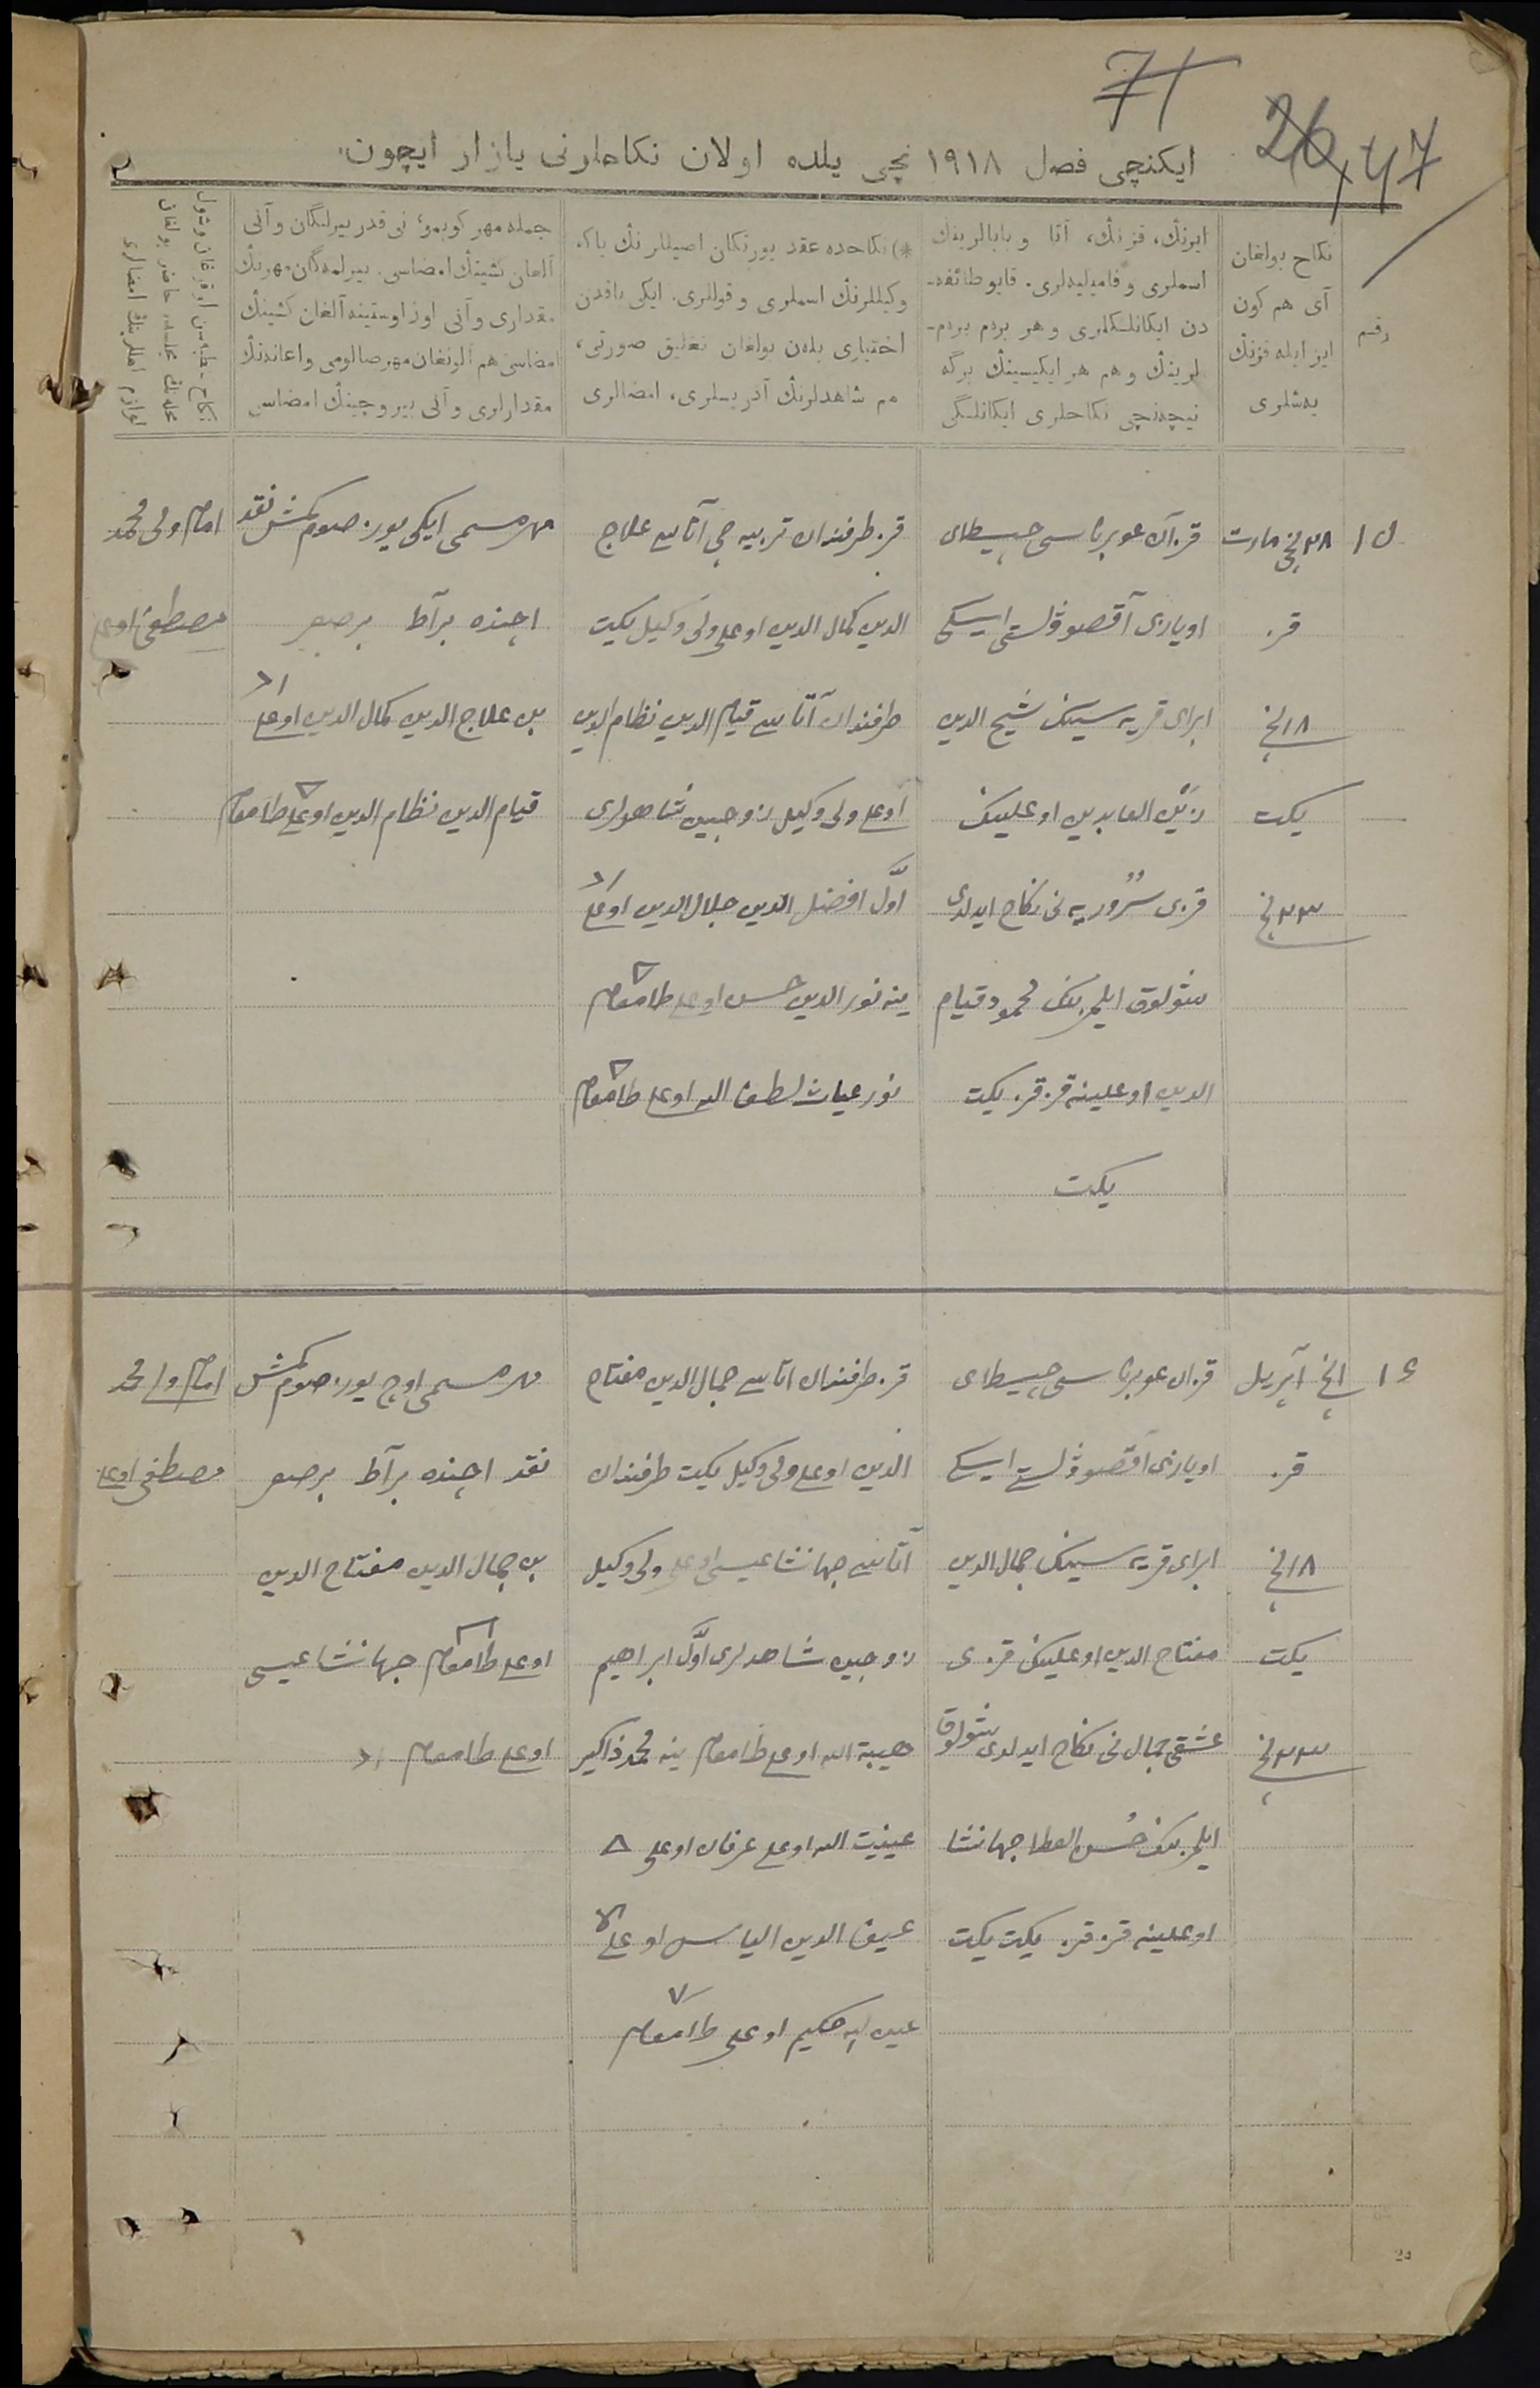 71
26,47
ایكنچی فصل ١٩١٨ نچی یلده اولان نكاحلرنی یازار ایچون.
٢
رقم
نكاح بولغان
آی هم كون
ایر ایله قزنڭ
یەشلری
ایرنڭ، قزنڭ، آتا و بابالرینڭ
اسملری و فامیلیەلری. قایو طائفه‌ـ
دن ایكانلكلری و هر بردم بردم‌ـ
لرینڭ و هم هر ایكیسینڭ برگه
نیچەنچی نكاحلری ایكانلگی
*) نكاحده عقد یورتكان اصیللرنڭ یاكه
وكیللرنڭ اسملری و قوللری. ایكی یاقدن
اختیاری بلەن بولغان تعلیق صورتی،
هم شاهدلرنڭ آدریسلری، امضالری
جمله مهر كوبمو؛ نی قدر بیرلگان و آنی
آلغان كشینڭ امضاسی. بیرلمەگان مهرنڭ
مقداری و آنی اوز اوستینه آلغان كشینڭ
امضاسی هم آلونغان مهر صالومی و اعانه‌نڭ
مقدارلری و آنی بیروچینڭ امضاسی
١٥
٢٨ نچی مارت
قز
١٨ نچی
یكت
٢٣ نچی
قزان غوبرناسی چیسطای
اویازی آقصو ولستی ایسكی
ابرای قریه سینڭ شیخ الدین
زین العابدین اوغلینڭ
قزی سروریه نی نكاح ایدلدی
شولوق ایلمزنڭ محمود قیام
الدین اوغلینه قز قز یكت
یكت
قز طرفندان تربیه چی آتاسی علاج
الدین كمال الدین اوغلی ولی وكیل یكت
طرفندان آتاسی قیام الدین نظام الدین
اوغلی ولی وكیل زوجین شاهدلری
اول افضل الدین جلال الدین اوغلی
ینه نور الدین حسن اوغلی طامغام
نور غیاث لطف الله اوغلی طامغام
مهر مسمی ایكی یوز صوم كمش نقد
اچنده بر آط بر صعر
بن علاج الدین كمال الدین اوغلی
قیام الدین نظام الدین اوغلی طامغام
امام ولی محمد
مصطفی اوغلی
١٦
١ نچی آپریل
قز
١٨ نچی
یكت
٢٣ نچی
قزان غوبرناسی چیسطای
اویازی آقصو ولستی ایسكی
ابرای قریه سینڭ جمال الدین
مفتاح الدین اوغلینڭ قزی
عشقی جمال نی نكاح ایدلدی شولوق
ایلمزنڭ حسن العطا جهانشا
اوغلینه قز قز یكت یكت
قز طرفندان اتاسی جمال الدین مفتاح
الدین اوغلی ولی وكیل یكت طرفندان
آتاسی جهانشا عیسی اوغلی ولی وكیل
زوجین شاهدلری اول ابراهیم
هیبة الله اوغلی طامغام ینه محمد ذاكیر
عینیت الله اوغلی عرفان اوغلی
الدین الیاس اوغلی
حكیم اوغلی طامغام
مهر مسمی اوچ یوز صوم كمش
نقد اچنده بر آط بر صعر
بن جمال الدین مفتاح الدین
اوغلی طامغام جهانشا عیسی
اوغلی طامغام
امام ولی محمد
مصطفی اوغلی